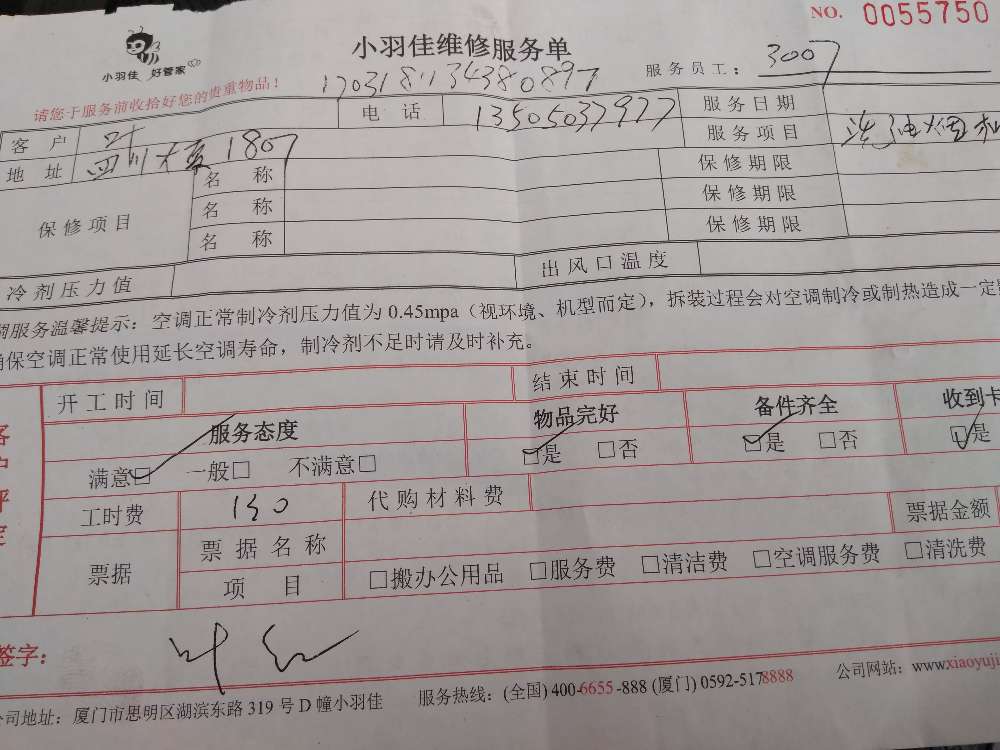 NO. 0055750
小羽佳 好管家
小羽佳维修服务单
服务员工： 3007
请您于服务前收拾好您的贵重物品！
1703181134380897
客 户 叶 电 话 13505037977 服务日期
地 址 四川大厦 1807 服务项目 洗油烟机
保修项目 名 称 保修期限
名 称 保修期限
名 称 保修期限
冷剂压力值 出风口温度
调服务温馨提示：空调正常制冷剂压力值为 0.45mpa（视环境、机型而定），拆装过程会对空调制冷或制热造成一定
确保空调正常使用延长空调寿命，制冷剂不足时请及时补充。
开工时间 结束时间
服务态度 物品完好 备件齐全 收到卡
满意□ 一般□ 不满意□ □是 □否 □是 □否 □是
客户评定
工时费 130 代购材料费
票据 票据名称 票据金额
项 目 □搬办公用品 □服务费 □清洁费 □空调服务费 □清洗费
签字：
公司地址：厦门市思明区湖滨东路 319 号 D 幢小羽佳 服务热线：(全国) 400-6655-888 (厦门) 0592-5178888 公司网站：www.xiaoyuji